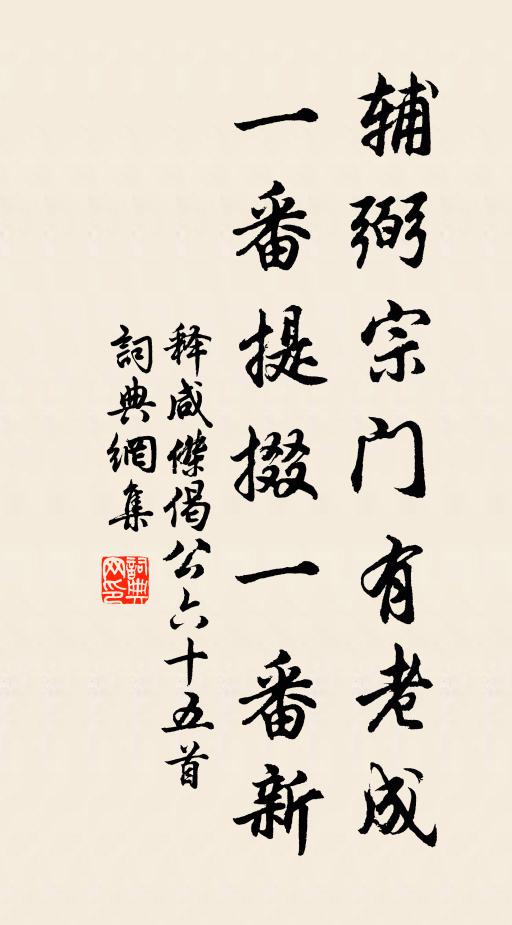 辅弼宗门有老成
一番提掇一番新
释咸傑偈公六十五首
詞典網集
詞典网印